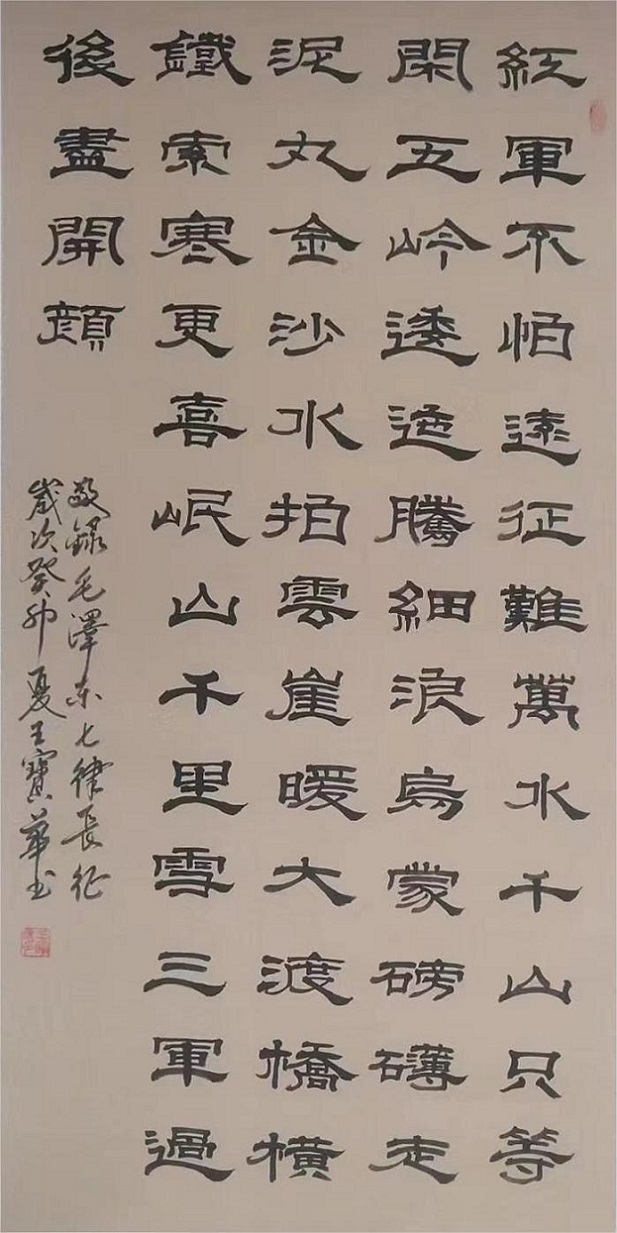 紅軍不怕遠征難萬水千山只等
閑五岭逶迤騰細浪烏蒙磅礴走
泥丸金沙水拍雲崖暖大渡橋橫
鐵索寒更喜岷山千里雪三軍過
後盡開顏
敬錄毛澤东七律長征
歲次癸卯夏王寶華书